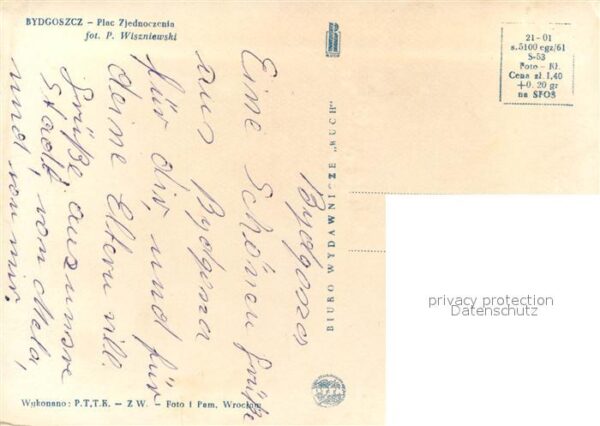 BYDGOSZCZ – Plac Zjednoczenia
fot. P. Wiszniewski
21-01
s. 5100 egz/61
S-53
Foto – Kl.
Cena zł. 1,40
+0.20 gr
na SFOS
BIURO WYDAWNICZE „RUCH"
Bydgosz
Eine Schönen Grüße
aus Bydgosza
für dir, und für
deine Eltern vill.
Grüße aus unsre
Stadt, von Mela,
und von mir.
Wykonano: P.T.T.K. – Z W. – Foto i Pam. Wrocław
privacy protection
Datenschutz